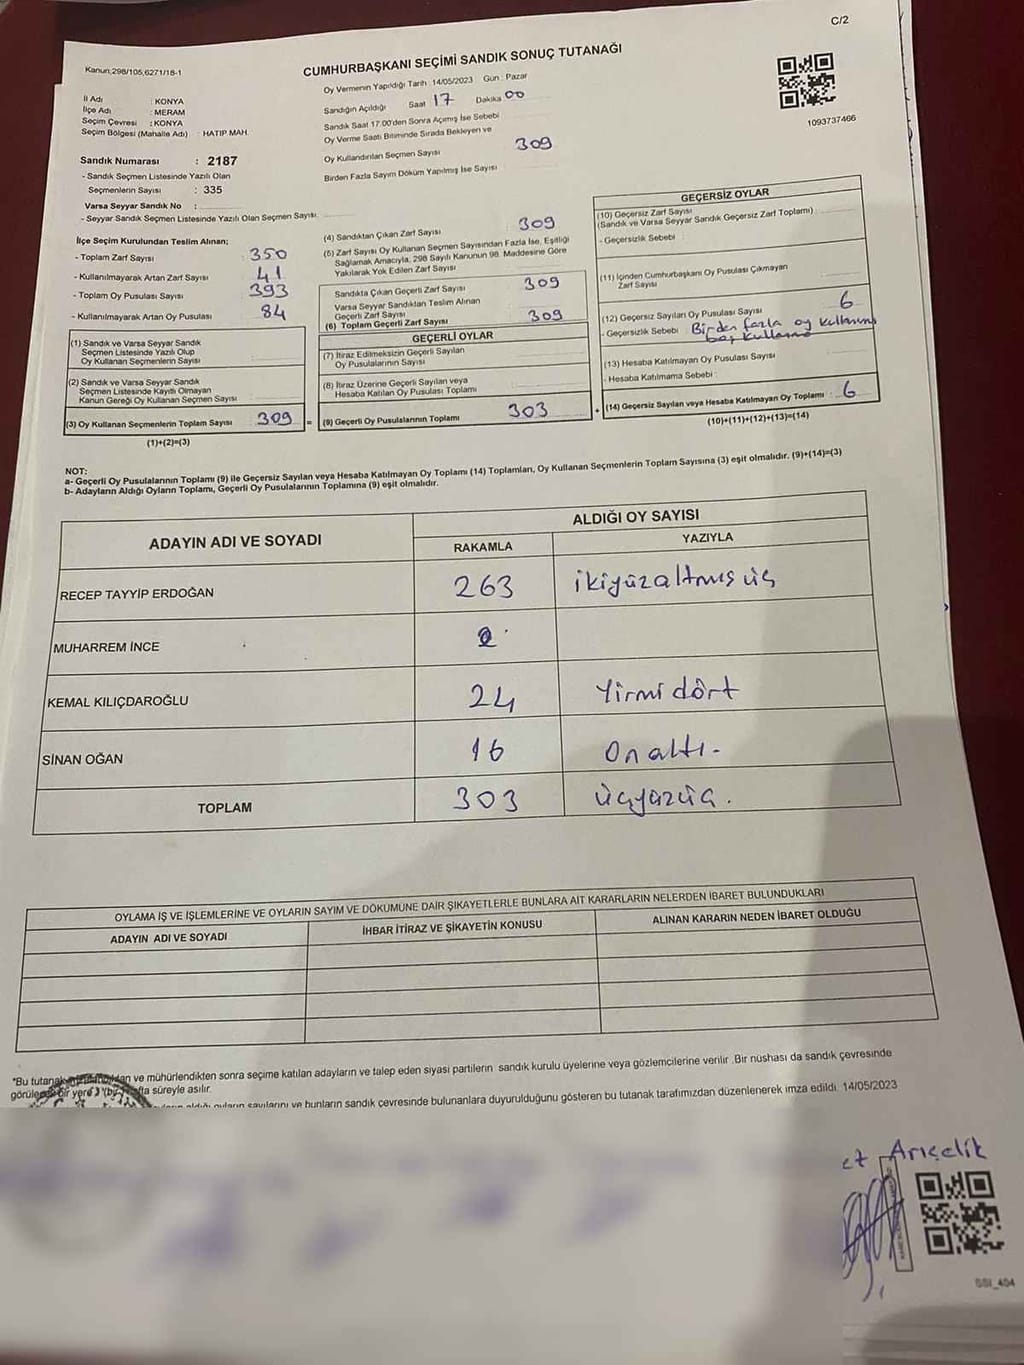 C/2
Kanun;298/105,6271/18-1
CUMHURBAŞKANI SEÇİMİ SANDIK SONUÇ TUTANAĞI
İl Adı : KONYA
İlçe Adı : MERAM
Seçim Çevresi : KONYA
Seçim Bölgesi (Mahalle Adı) : HATIP MAH.
Oy Vermenin Yapıldığı Tarih : 14/05/2023 Gün : Pazar
Sandığın Açıldığı Saat 17 Dakika 00
Sandık Saat 17.00'den Sonra Açımış İse Sebebi
Oy Verme Saati Bitiminde Sırada Bekleyen ve
Oy Kullandırılan Seçmen Sayısı 309
Birden Fazla Sayım Döküm Yapılmış İse Sayısı
1093737466
Sandık Numarası : 2187
- Sandık Seçmen Listesinde Yazılı Olan
Seçmenlerin Sayısı : 335
Varsa Seyyar Sandık No :
- Seyyar Sandık Seçmen Listesinde Yazılı Olan Seçmen Sayısı:
İlçe Seçim Kurulundan Teslim Alınan;
- Toplam Zarf Sayısı 350
- Kullanılmayarak Artan Zarf Sayısı 41
- Toplam Oy Pusulası Sayısı 393
- Kullanılmayarak Artan Oy Pusulası 84
(1) Sandık ve Varsa Seyyar Sandık
Seçmen Listesinde Yazılı Olup
Oy Kullanan Seçmenlerin Sayısı
(2) Sandık ve Varsa Seyyar Sandık
Seçmen Listesinde Kayıtlı Olmayan
Kanun Gereği Oy Kullanan Seçmen Sayısı
(3) Oy Kullanan Seçmenlerin Toplam Sayısı 309 =
(1)+(2)=(3)
(4) Sandıktan Çıkan Zarf Sayısı 309
(5) Zarf Sayısı Oy Kullanan Seçmen Sayısından Fazla İse, Eşitliği
Sağlamak Amacıyla, 298 Sayılı Kanunun 98. Maddesine Göre
Yakılarak Yok Edilen Zarf Sayısı
Sandıkta Çıkan Geçerli Zarf Sayısı 309
Varsa Seyyar Sandıktan Teslim Alınan
Geçerli Zarf Sayısı
(6) Toplam Geçerli Zarf Sayısı 309
GEÇERLİ OYLAR
(7) İtiraz Edilmeksizin Geçerli Sayılan
Oy Pusulalarının Sayısı
(8) İtiraz Üzerine Geçerli Sayılan veya
Hesaba Katılan Oy Pusulası Toplamı
(9) Geçerli Oy Pusulalarının Toplamı 303 +
GEÇERSİZ OYLAR
(10) Geçersiz Zarf Sayısı
(Sandık ve Varsa Seyyar Sandık Geçersiz Zarf Toplamı) :
- Geçersizlik Sebebi :
(11) İçinden Cumhurbaşkanı Oy Pusulası Çıkmayan
Zarf Sayısı
(12) Geçersiz Sayılan Oy Pusulası Sayısı 6
- Geçersizlik Sebebi Birden fazla oy kullanımı
boş kullanma
(13) Hesaba Katılmayan Oy Pusulası Sayısı
- Hesaba Katılmama Sebebi :
(14) Geçersiz Sayılan veya Hesaba Katılmayan Oy Toplamı : 6
(10)+(11)+(12)+(13)=(14)
NOT:
a- Geçerli Oy Pusulalarının Toplamı (9) ile Geçersiz Sayılan veya Hesaba Katılmayan Oy Toplamı (14) Toplamları, Oy Kullanan Seçmenlerin Toplam Sayısına (3) eşit olmalıdır. (9)+(14)=(3)
b- Adayların Aldığı Oyların Toplamı, Geçerli Oy Pusulalarının Toplamına (9) eşit olmalıdır.
ADAYIN ADI VE SOYADI ALDIĞI OY SAYISI
RAKAMLA YAZIYLA
RECEP TAYYİP ERDOĞAN 263 ikiyüzaltmış üç
MUHARREM İNCE
KEMAL KILIÇDAROĞLU 24 Yirmi dört
SİNAN OĞAN 16 On altı.
TOPLAM 303 üçyüzüç.
OYLAMA İŞ VE İŞLEMLERİNE VE OYLARIN SAYIM VE DÖKÜMÜNE DAİR ŞİKAYETLERLE BUNLARA AİT KARARLARIN NELERDEN İBARET BULUNDUKLARI
ADAYIN ADI VE SOYADI İHBAR İTİRAZ VE ŞİKAYETİN KONUSU ALINAN KARARIN NEDEN İBARET OLDUĞU
"Bu tutanak ve mühürlendikten sonra seçime katılan adayların ve talep eden siyasi partilerin sandık kurulu üyelerine veya gözlemcilerine verilir .Bir nüshası da sandık çevresinde
bir yere süreyle asılır.
oyların sayılarını ve bunların sandık çevresinde bulunanlara duyurulduğunu gösteren bu tutanak tarafımızdan düzenlenerek imza edildi. 14/05/2023
et Arıçelik
SSI_404